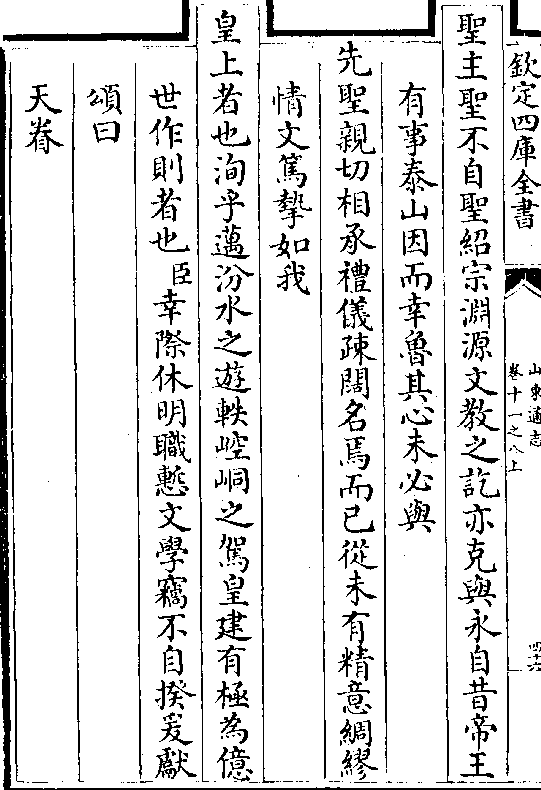 欽定四庫全書
山東通志
卷十一之八上
四十六
聖主聖不自聖紹宗淵源文教之訖亦克與永自昔帝王
有事泰山因而幸魯其心未必與
先聖親切相承禮儀疎闊名焉而已從未有精意綢繆
情文篤摯如我
皇上者也洵乎邁汾水之遊軼崆峒之駕皇建有極為億
世作則者也臣幸際休明職慙文學竊不自揆爰獻
頌曰
天眷